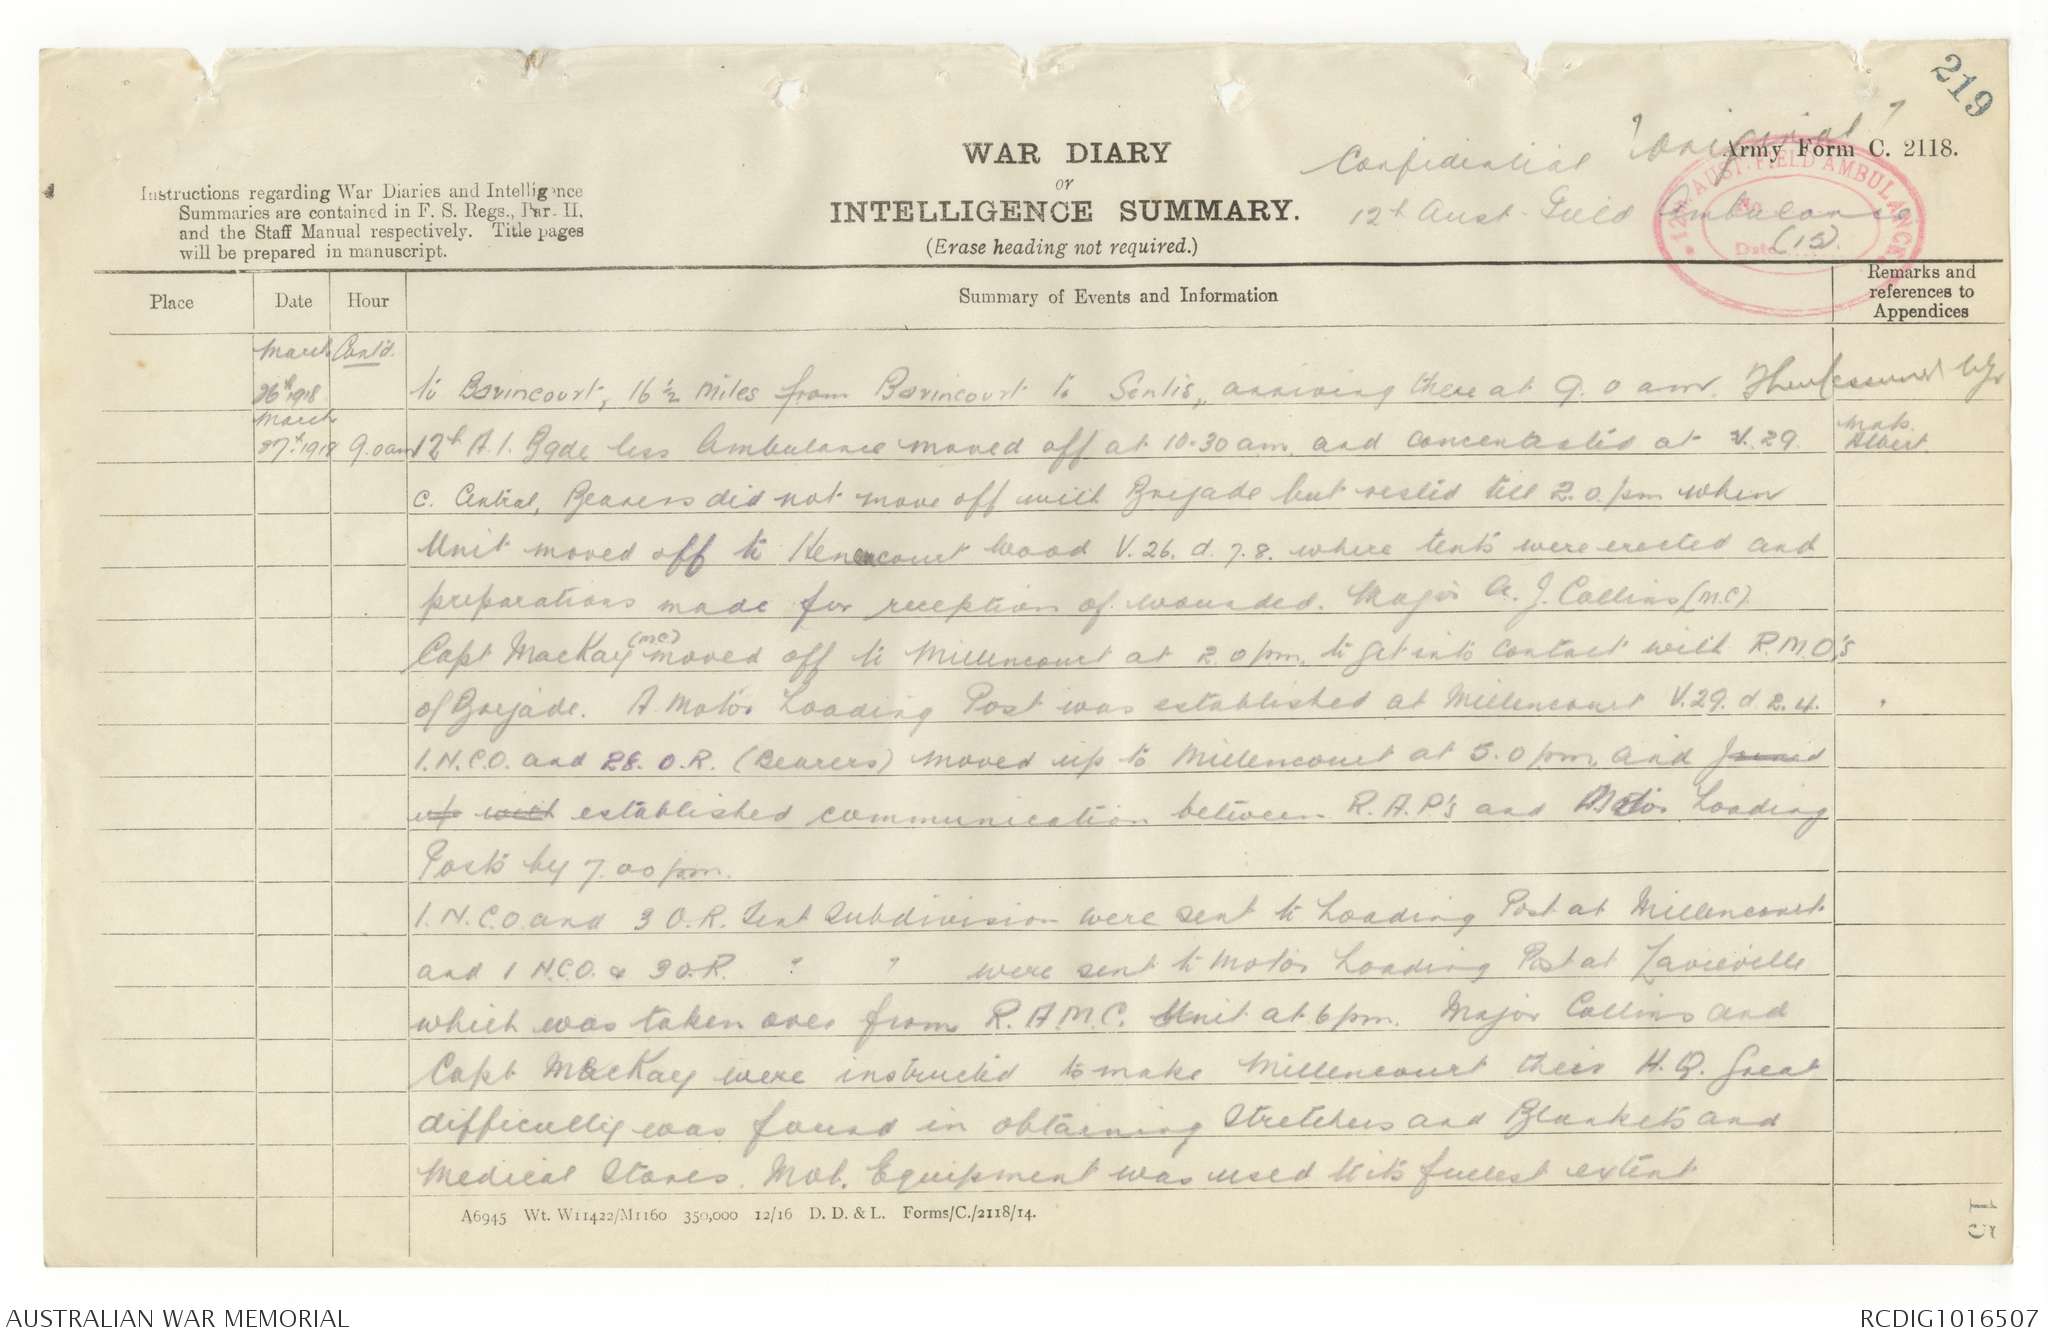 219
WAR DIARY
or
INTELLIGENCE SUMMARY.
(Erase heading not required.)
Instructions regarding War Diaries and Intelligence
Summaries are contained in F. S. Regs., Part II.
and the Staff Manual respectively. Title pages
will be prepared in manuscript.
"Original"
Army Form C. 2118.
Confidential
12th Aust. Field Ambulance
(15).
12th AUST. FIELD AMBULANCE
No.
Date
Place
Date
Hour
Summary of Events and Information
Remarks and
references to
Appendices
March Cont'd.
26th 1918 to Bavincourt, 16½ miles from Bavincourt to Senlis, arriving there at 9.0 am.
March
27th 1918 9.0am 12th A.I. Bgde less Ambulance moved off at 10.30 am and concentrated at V.29. Map. Albert.
C. Central, Bearers did not move off with Brigade but rested till 2.0 pm when
Unit moved off to Henencourt Wood V.26.d.7.8. where tents were erected and
preparations made for reception of wounded. Major A.J. Collins (M.C).
Capt MacKay (MC) moved off to Millencourt at 2.0 pm, to get into contact with R.M.O's
of Brigade. A Motor Loading Post was established at Millencourt V.29.d.2.4.
1. N.C.O. and 28. O.R. (Bearers) moved up to Millencourt at 5.0 pm, and joined
up with established communication between R.A.P's and Motor Loading
Posts by 7.00 pm.
1. N.C.O. and 3 O.R. Tent Subdivision were sent to Loading Post at Millencourt
and 1 N.C.O. & 3 O.R. " " were sent to Motor Loading Post at Lavieville
which was taken over from R.A.M.C. Unit at 6 pm. Major Collins and
Capt MacKay were instructed to make Millencourt their H.Q. Great
difficulty was found in obtaining Stretchers and Blankets and
Medical Stores. Mob. Equipment was used to its fullest extent
A6945 Wt. W11422/M1160 350,000 12/16 D. D. & L. Forms/C./2118/14.
AUSTRALIAN WAR MEMORIAL
RCDIG1016507